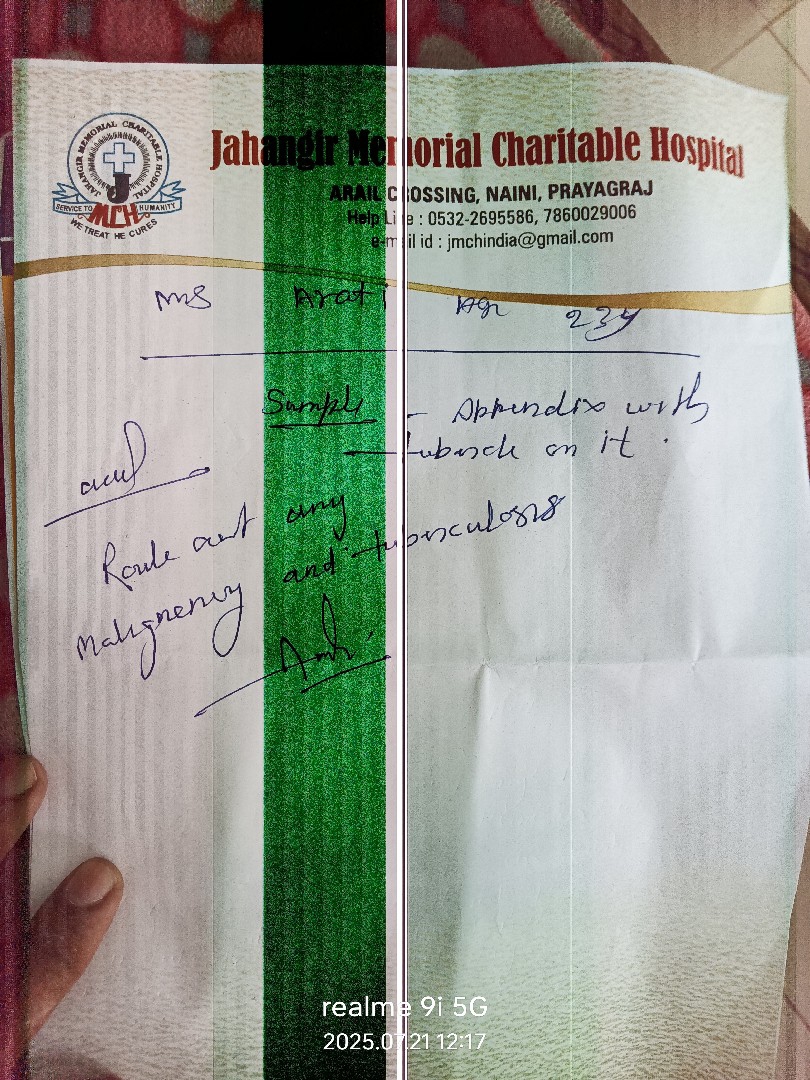 JAHANGIR MEMORIAL CHARITABLE HOSPITAL
J
SERVICE TO HUMANITY
MCH
WE TREAT HE CURES
Jahangir Memorial Charitable Hospital
ARAIL CROSSING, NAINI, PRAYAGRAJ
Help Line : 0532-2695586, 7860029006
e-mail id : jmchindia@gmail.com
Ms Arati Age 23y
Sample - Appendix with
tubercle on it.
Roule out any
Malignency and tuberculosis
realme 9i 5G
2025.07.21 12:17